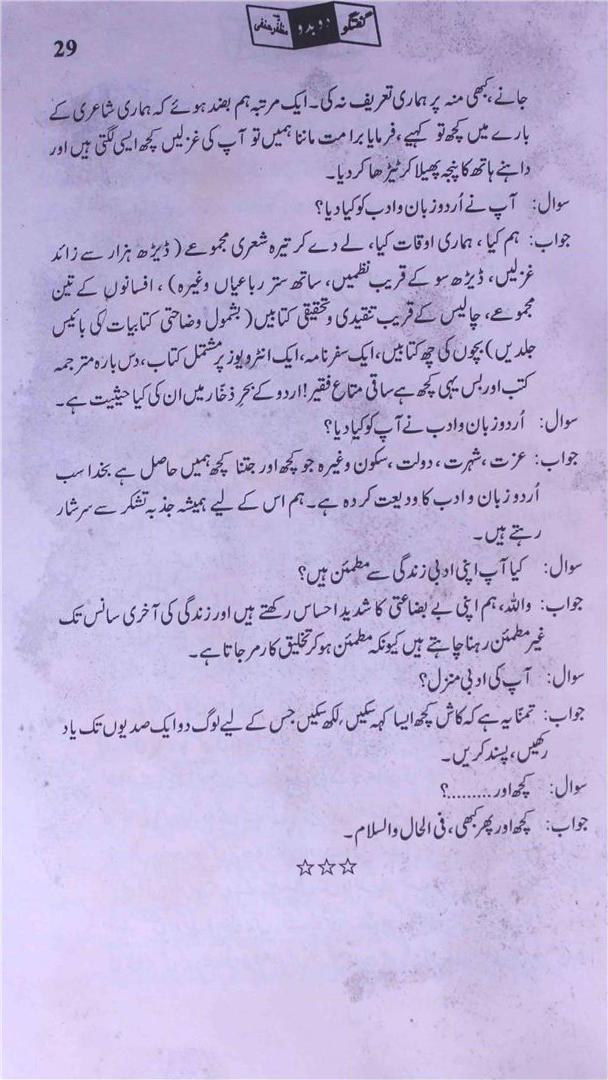 گفتگو دوبدو مظفر حنفی
29
جانے، کبھی منہ پر ہماری تعریف نہ کی۔ ایک مرتبہ ہم بضد ہوئے کہ ہماری شاعری کے
بارے میں کچھ تو کہیے، فرمایا برا مت ماننا ہمیں تو آپ کی غزلیں کچھ ایسی لگتی ہیں اور
داہنے ہاتھ کا پنجہ پھیلا کر ٹیڑھا کر دیا۔
سوال: آپ نے اُردو زبان و ادب کو کیا دیا؟
جواب: ہم کیا، ہماری اوقات کیا، لے دے کر تیرہ شعری مجموعے (ڈیڑھ ہزار سے زائد
غزلیں، ڈیڑھ سو کے قریب نظمیں، ساٹھ ستر رباعیاں وغیرہ)، افسانوں کے تین
مجموعے، چالیس کے قریب تنقیدی و تحقیقی کتابیں (بشمول وضاحتی کتابیات کی بائیس
جلدیں) بچوں کی چھ کتابیں، ایک سفرنامہ، ایک انٹرویوز پر مشتمل کتاب، دس بارہ مترجمہ
کتب اور بس یہی کچھ ہے ساقی متاع فقیر! اردو کے بحرِ ذخّار میں ان کی کیا حیثیت ہے۔
سوال: اُردو زبان و ادب نے آپ کو کیا دیا؟
جواب: عزت، شہرت، دولت، سکون وغیرہ جو کچھ اور جتنا کچھ ہمیں حاصل ہے بخدا سب
اُردو زبان و ادب کا ودیعت کردہ ہے۔ ہم اس کے لیے ہمیشہ جذبہ تشکر سے سرشار
رہتے ہیں۔
سوال: کیا آپ اپنی ادبی زندگی سے مطمئن ہیں؟
جواب: واللہ، ہم اپنی بے بضاعتی کا شدید احساس رکھتے ہیں اور زندگی کی آخری سانس تک
غیر مطمئن رہنا چاہتے ہیں کیونکہ مطمئن ہو کر تخلیق کار مر جاتا ہے۔
سوال: آپ کی ادبی منزل؟
جواب: تمنّا یہ ہے کہ کاش کچھ ایسا کہہ سکیں، لکھ سکیں جس کے لیے لوگ دو ایک صدیوں تک یاد
رکھیں، پسند کریں۔
سوال: کچھ اور.........؟
جواب: کچھ اور پھر کبھی، فی الحال والسلام۔
☆☆☆